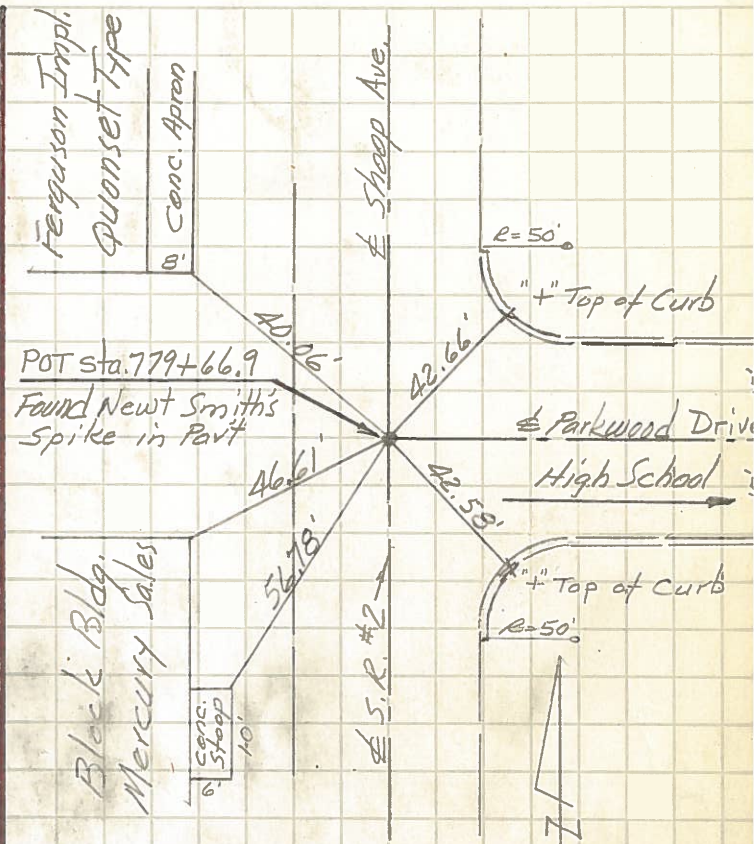 Ferguson Impl.
Quonset Type
Conc. Apron
8'
℄ Shoop Ave.
R=50'
"+" Top of Curb
40.06'
42.66'
POT Sta. 779+66.9
Found Newt Smith's
Spike in Pav't
℄ Parkwood Drive
High School
46.61'
42.58'
56.78'
"+" Top of Curb
R=50'
Block Bldg.
Mercury Sales
Conc.
Stoop
10'
6'
℄ S.R. #2